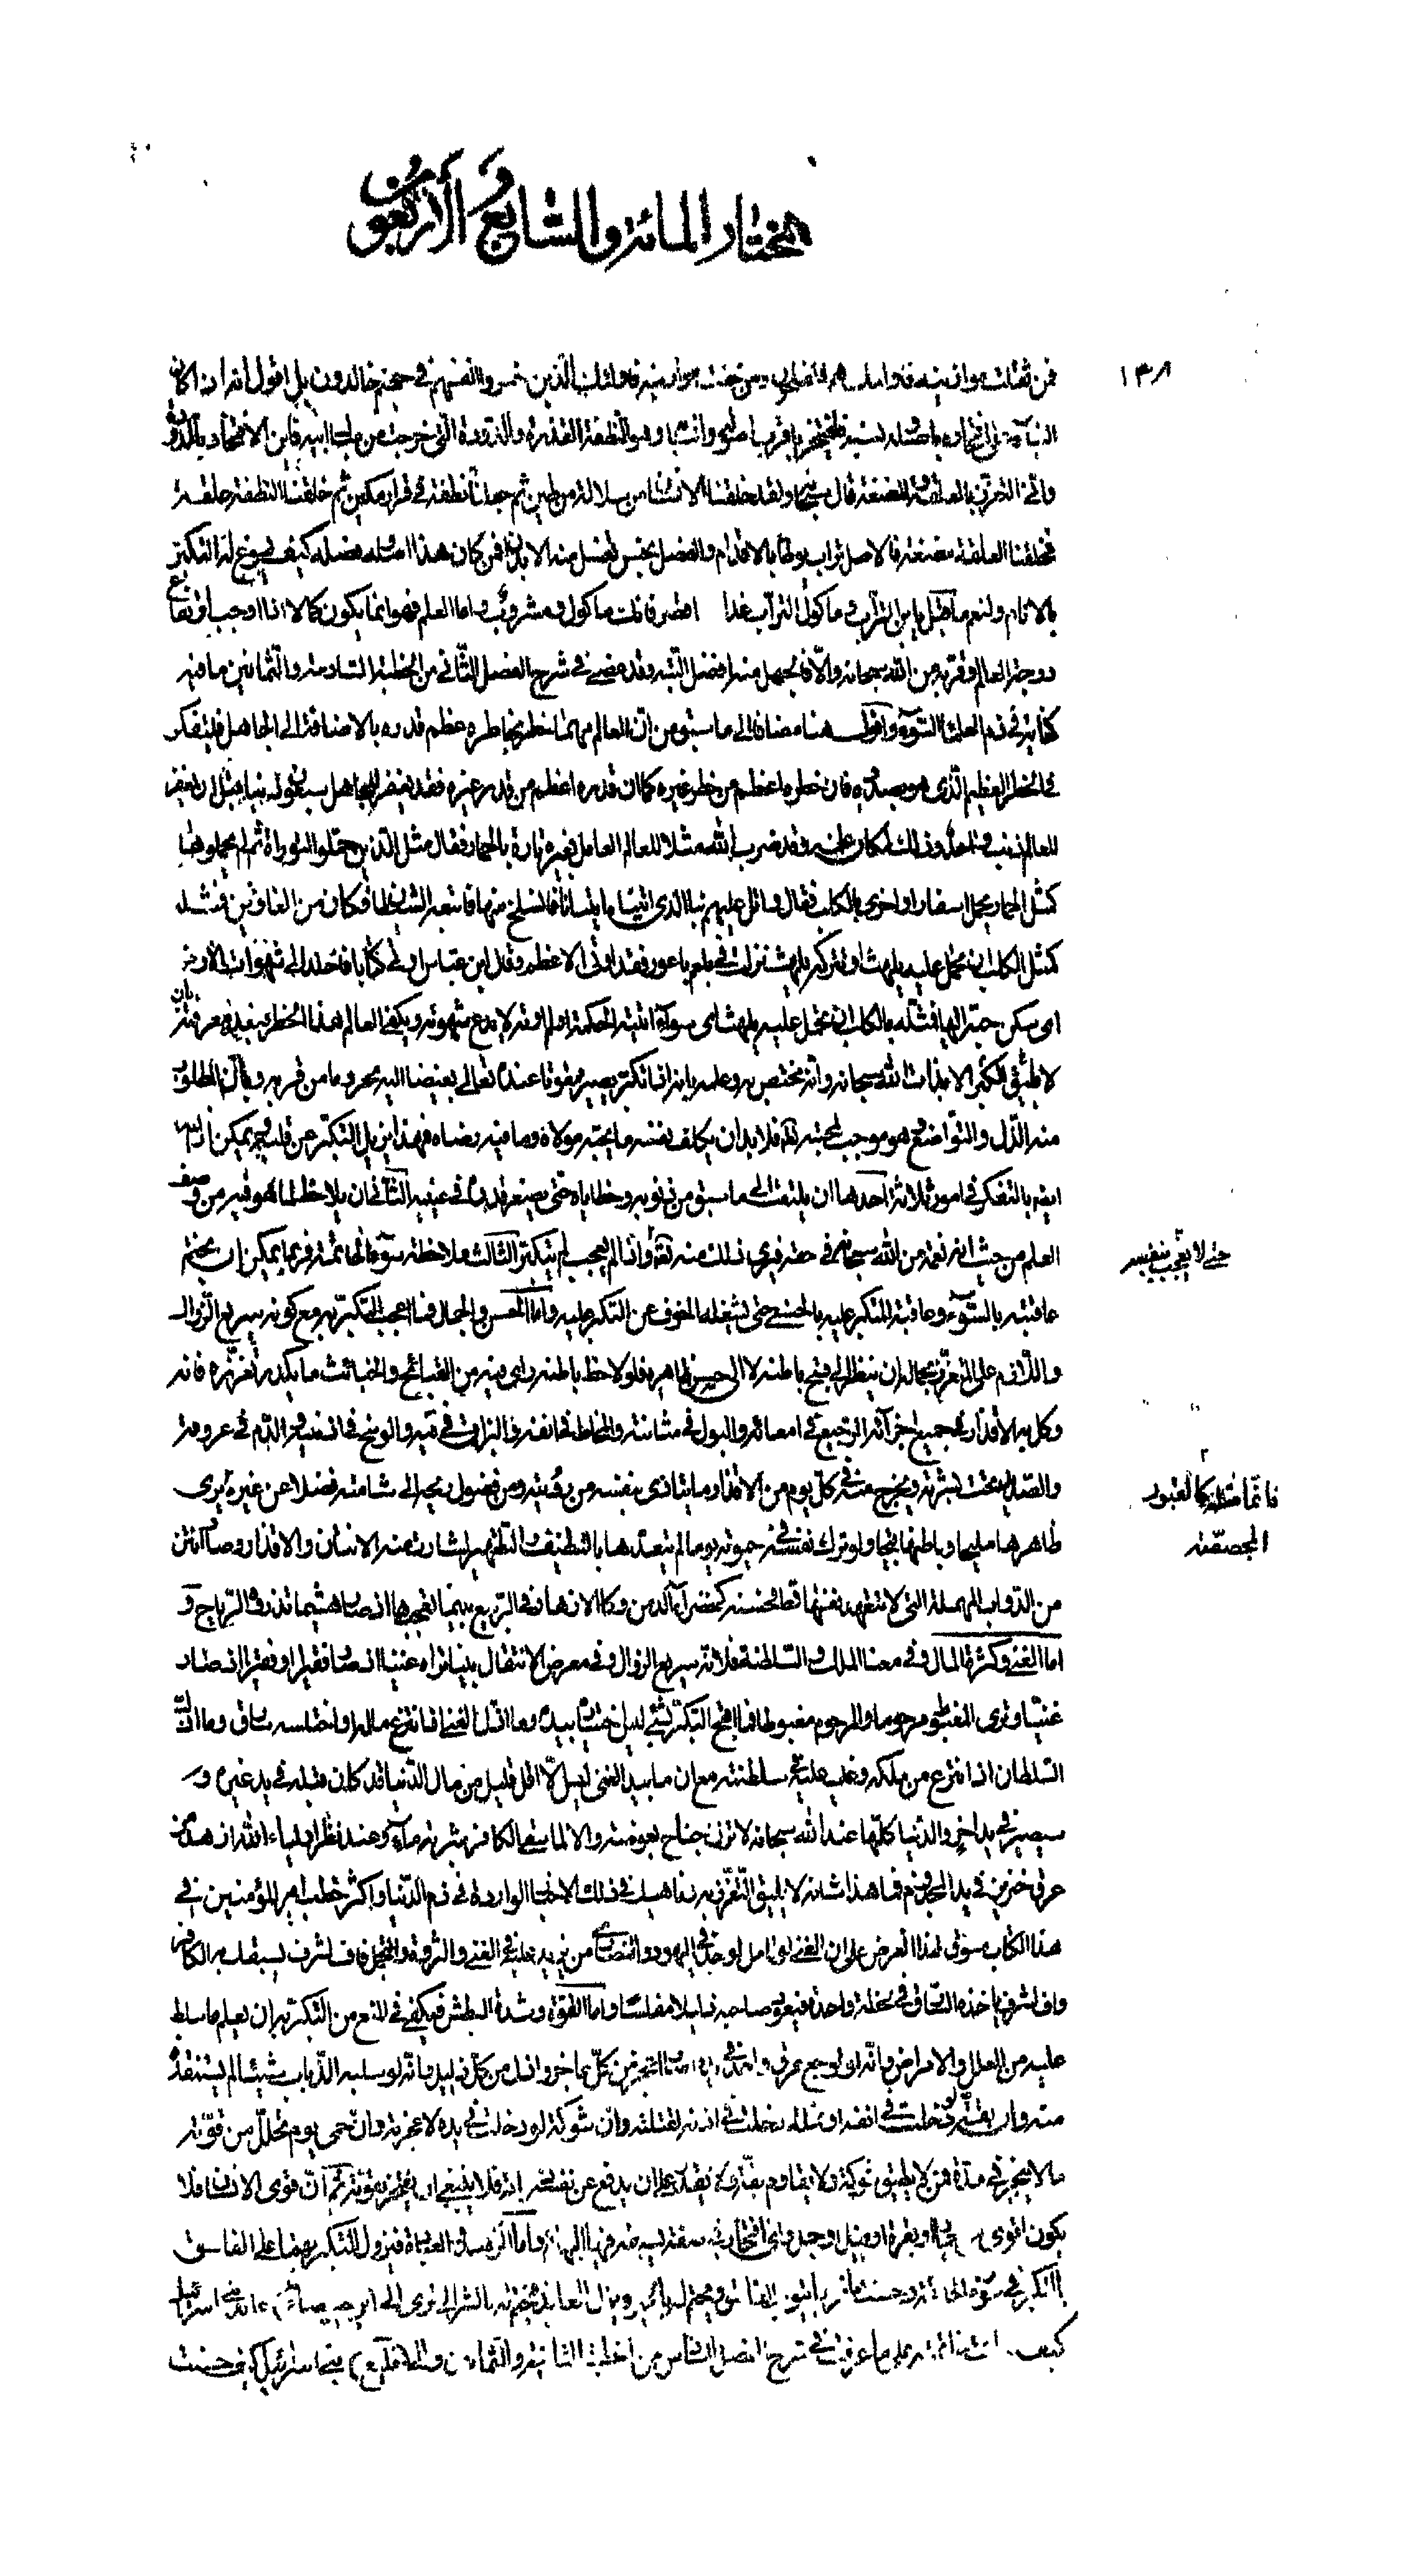 المختار المائة والسابع والأربعون
١٣٨
فمن ثقلت موازينه فاولئك هم المفلحون ومن خفت موازينه فاولئك الذين خسروا انفسهم في جهنم خالدون بل اقول انه ان كان
وانت والنطفة القذرة والدودة التي خرجت من
واى التعزز بالعلقة والمضغة قال سبحانه ولقد خلقنا الانسان من سلالة من طين ثم جعلناه نطفة في قرار مكين ثم خلقنا النطفة علقة
فخلقنا العلقة مضغة فالاصل تراب يوطأ بالاقدام والفصل نجس تغسل منه الابدان فمن كان هذا اصله وفصله كيف يسوغ له التكبر
بالانام ولنعم ما قيل يا بن التراب وماكول التراب غدا اقصر فانك ماكول ومشروب واما العلم فهو انما يكون كمالا اذا اوجب ارتفاع
درجة العالم وقربه من الله سبحانه والا فالجهل منه افضل البتة وقد مضى في شرح الفصل الثاني من الخطبة السادسة والثمانين ما فيه
كفاية في ذم العلماء السوء واقول هنا مضافا الى ما سبق من ان العالم مهما خطر بخاطره عظم قدره بالاضافة الى الجاهل فليتفكر
في الخطر العظيم الذي هو بصدده فان خطره اعظم من خطر غيره كما ان قدره اعظم من قدر غيره فقد يغفر للجاهل سبعون ذنبا قبل ان يغفر
للعالم ذنب واحد وذلك لمكان علمه وقد ضرب الله مثلا للعالم العامل بغيره تارة بالحمار فقال مثل الذين حملوا التوراة ثم لم يحملوها
كمثل الحمار يحمل اسفارا واخرى بالكلب فقال واتل عليهم نبا الذي اتيناه اياتنا فانسلخ منها فاتبعه الشيطان فكان من الغاوين فمثله
كمثل الكلب ان تحمل عليه يلهث او تتركه يلهث نزلت في بلعم باعور فقد اوتى الاعظم وقال ابن عباس اوتى كتابا فاخلد الى شهوات الارض
اى سكن حبه اليها فمثله بالكلب ان تحمل عليه يلهث اى سواء اتيته الحكمة او لم اوته لا يدع شهوته ويكفي العالم هذا الخطر بعد معرفته بان
لا يليق الكبر الا بذات الله سبحانه وانه مختص به وعلمه بانه اذا تكبر يصير ممقوتا عند الله تعالى بغيضا اليه محروما من قربه وبان المطلوب
منه الذل والتواضع وهو موجب لمحبته له فلا بد ان يكلف نفسه ما يحبه مولاه وما فيه رضاه فهذا يزيل التكبر عن قلبه ويمكن ازالته
ايضا بالتفكر في امور ثلاثة احدها ان يلتفت الى ما سبق من ذنوبه وخطاياه حتى يصغر قدره في عينيه الثاني ان يلاحظ ما هو فيه من وصف
العلم من حيث انه نعمة من الله سبحانه في حقه فيرى ذلك منه تعالى واذا لم يعجب لم يتكبر الثالث ملاحظة سوء الخاتمة فربما يمكن ان يختم
حتى لا يعجب بنفسه
عاقبته بالسوء وعاقبة المتكبر عليه بالحسنى حتى يشغله الخوف عن التكبر عليه واما الحسن والجمال فما اعجب التكبر به مع كونه سريع الزوال
واللازم على المتعزز بجماله ان ينظر الى قبح باطنه لا الى حسن ظاهره فلو لاحظ باطنه راى فيه من القبائح والخبائث ما يكدر تعززه فانه
وكل به الاقذار في جميع اجزائه الرجيع في امعائه والبول في مثانته والمخاط في انفه والبزاق في فيه والوسخ في اذنيه والدم في عروقه
والصديد تحت بشرته ويخرج منه في كل يوم من الاقذار ما يتاذى بنفسه من رؤيته ومن وصول ريحه الى شامته فضلا عن غيره يرى
فانما مثله كالقبور
المجصصة
ظاهرها مليحا وباطنها قبيحا ولو ترك نفسه في حيوته يوما لم يتعهدها بالتنظيف والتطهير لثارت منه الانتان والاقذار وصار انتن
من الدواب المهملة التي لا تتعهد نفسها قط فحسنه كخضراء الدمن وكالازهار في الربيع بينما تعجبها اذ صار هشيما تذروه الرياح و
اما الغنى وكثرة المال وفي معناه الملك والسلطنة فلانه سريع الزوال وفي معرض الانتقال بينا تراه غنيا اذ صار فقيرا وفقيرا اذ صار
غنيا وترى المغبوط مرحوما والمرحوم مغبوطا فما اقبح التكبر بشيء ليس اختياره بيده وما اذل الغنى اذا انتزع ماله او اختلسه سارق وما اذل
السلطان اذا انتزع من ملكه وغلب عليه في سلطنته مع ان ما بيد الغنى ليس الا اقل قليل من مال الدنيا قد كان قبله في يد غيره و
سيصير في يد اخر والدنيا كلها عند الله سبحانه لا تزن جناح بعوضة والا لما سقى الكافر شربة ماء وعند نظر اولياء الله ازهد من
عرق خنزير في يد المجذوم فما هذا شانه لا يليق التعزز به وناهيك في ذلك الاخبار الواردة في ذم الدنيا واكثر خطب امير المؤمنين في
هذا الكتاب مسوق لهذا الغرض على ان الغنى لو تامل لوجد في اليهود والنصارى من يزيد عليه في الغنى والثروة والتجمل فاف لشرف يسبقك به الكافر
واف لشرف ياخذه السارق في لحظة واحدة فيعود صاحبه ذليلا مفلسا واما القوة وشدة البطش فيكفي في المنع من التكبر به ان يعلم ما سلط
عليه من العلل والامراض وانه لو توجع عرق واحد في يده صار اعجز من كل عاجز واذل من كل ذليل وانه لو سلبه الذباب شيئا لم يستنقذ
منه وان بقة لو دخلت في انفه او نملة دخلت في اذنه لقتلته وان شوكة لو دخلت في يده لاعجزته وان حمى يوم تحلل من قوته
ما لا ينجبر في مدة فمن لا يطيق شوكة ولا يقاوم بقة ولا يقدر على ان يدفع عن نفسه ذبابة فلا ينبغي ان يفتخر بقوته ثم ان قوى الانسان فلا
يكون اقوى من حمار او بقرة او فيل او جمل واى افتخار في صفة يسبقه فيها البهائم واما الزهد والعبادة فيزول التكبر بهما على الفاسق
بالفكر في سوء الخاتمة وحسنها
كيف في شرح الفصل السادس من الخطبة الثانية والثمانين بنى اسرائيل كيف حسنت